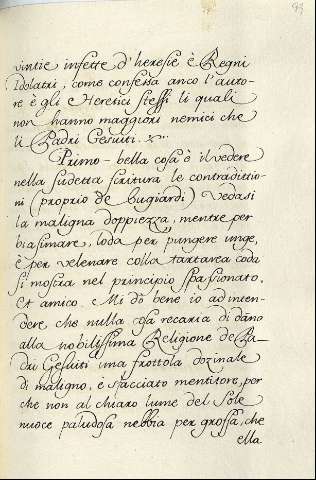 vintie infette d'heresie è Regni
Idolatri, come confessa anco l'auto-
re è gli e Heretici stessi li quali
non hanno maggiori nemici che
li Padri Gesuiti.
Primo - bella cosa è il vedere
nella sudetta scritura le contradittio-
ni (proprio de bugiardi) Vedasi
la maligna doppiezza, mentre per
biasimare, loda per pungere unge,
è per velenare colla tartarea coda
si mostra nel principio spassionato,
et amico. Mi dò bene io ad inten-
dere che nulla cosa recaria di dano
alla nobilissima Religione de Pa-
dri Gesuiti una frottola dozinale
di maligno, è sfacciato mentitore, per
che non al chiaro lume del Sole
nuoce paludosa nebbia per grossa, che
ella